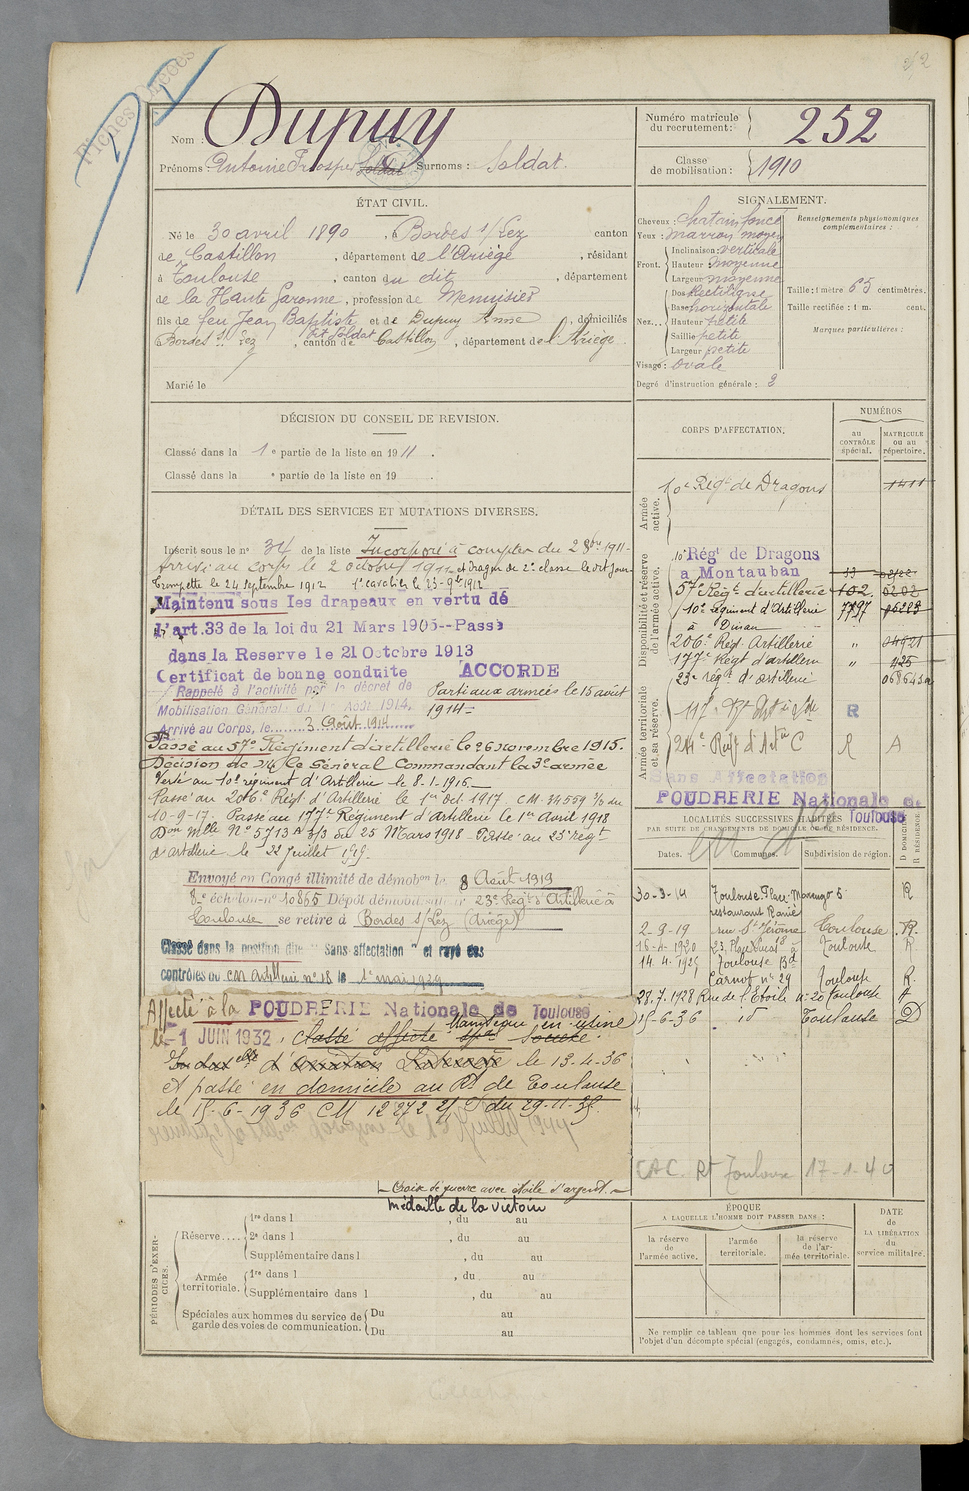 Fiches Créées
Nom : Dupuy
Prénoms : Antoine Prosper Surnoms : Soldat.
Numéro matricule du recrutement : 252
Classe de mobilisation : 1910
ÉTAT CIVIL.
Né le 30 avril 1890, à Bordes s/Lez canton
de Castillon, département de l'Ariège, résidant
à Toulouse, canton du dit, département
de la Haute Garonne, profession de Menuisier
fils de feu Jean Baptiste et de Dupuy Anne, domiciliés
dit Soldat
Bordes s/ Lez, canton de Castillon, département de l'Ariège.
Marié le
SIGNALEMENT.
Cheveux : chatain foncé
Yeux : marron moyen
Front. Inclinaison : verticale
Hauteur : moyenne
Largeur : moyenne
Nez... Dos : Rectiligne
Base : horizontale
Hauteur petite
Saillie petite
Largeur petite
Visage : ovale
Renseignements physionomiques complémentaires :
Taille : 1 mètre 65 centimètres.
Taille rectifiée : 1 m. cent.
Marques particulières :
Degré d'instruction générale : 3
DÉCISION DU CONSEIL DE REVISION.
Classé dans la 1e partie de la liste en 1911.
Classé dans la e partie de la liste en 19 .
DÉTAIL DES SERVICES ET MUTATIONS DIVERSES.
Inscrit sous le n° 34 de la liste Incorporé à compter du 2 8bre 1911-
Arrivé au corps le 2 octobre 1911 et Dragon de 2e classe le dit jour
Trompette le 24 septembre 1912 1e cavalier le 23-9bre 1912
Maintenu sous les drapeaux en vertu de
l'art.33 de la loi du 21 Mars 1905--Passé
dans la Reserve le 21 Octobre 1913
Certificat de bonne conduite ACCORDE
Rappelé à l'activité par le décret de
Mobilisation Générale du 1er Août 1914.
Arrivé au Corps, le 3 Août 1914
Parti aux armées le 15 août
1914=
Passé au 57e Régiment d'artillerie le 26 novembre 1915.
Décision de Mr le Général Commandant la 3e armée
Versé au 10e régiment d'Artillerie le 8.1.1916.
Passé au 206e Régt d'Artillerie le 1er Oct 1917. C.M. 34559 3/3 du
10-9-17. Passé au 177e Régiment d'Artillerie le 1er Avril 1918
Don Mlle N° 5713 A 3/3 du 25 Mars 1918 - Passé au 23e régt
d'artillerie le 22 Juillet 1919.
Envoyé en Congé illimité de démobon le 8 Août 1919
8e échelon n° 10865 Dépôt démobilisateur 23e Régt d'Artillerie à
Toulouse se retire à Bordes s/Lez (Ariège)
Classé dans la position dite " Sans affectation " et rayé des
contrôles du CM Artillerie n° 18 le 1er mai 1929
Affecté à la POUDRERIE Nationale de Toulouse
le -1 JUIN 1932, Classé affecté
le 13-4-36
et passé en domicile au Rt de Toulouse
le 15-6-1936 CM 12272
du 29-11-35.
Croix de guerre avec étoile d'argent.
Médaille de la victoire
CORPS D'AFFECTATION.
NUMÉROS
AU CONTRÔLE spécial.
MATRICULE ou au répertoire.
Armée active.
10e Régt de Dragons 1411
Disponibilité et réserve de l'armée active.
10e Régt de Dragons
a Montauban
57e Régt d'artillerie 102.
10e régiment d'Artillerie 7797
à Dinan
206e Régt Artillerie " 04921
177e Régt d'artillerie " 425
23e régt d'artillerie
Armée territoriale et sa réserve.
117e R
R A
Sans Affectation
POUDRERIE Nationale de
Toulouse
LOCALITÉS SUCCESSIVES HABITÉES
PAR SUITE DE CHANGEMENTS DE DOMICILE OU DE RÉSIDENCE.
Dates. Communes. Subdivision de région. D DOMICILE R RÉSIDENCE
30-3-14 Toulouse Place Marengo 6 R
restaurant
2-9-19 rue St Jérôme Toulouse R.
16-4-1920 23, Toulouse R
14.4.1925 Toulouse Bd
Carnot n° 29 Toulouse R.
28.7.1928 Rue de l'Etoile n° 20 Toulouse
15-6-36 id Toulouse D
CAC Rt Toulouse 17-1-40
PÉRIODES D'EXERCICES.
Réserve..... 1re dans l , du au
2e dans l , du au
Supplémentaire dans l , du au
Armée territoriale. 1re dans l , du au
Supplémentaire dans l , du au
Spéciales aux hommes du service de garde des voies de communication. Du au
Du au
ÉPOQUE
A LAQUELLE L'HOMME DOIT PASSER DANS :
la réserve de l'armée active.
l'armée territoriale.
la réserve de l'armée territoriale.
DATE DE LA LIBÉRATION du service militaire.
Ne remplir ce tableau que pour les hommes dont les services font
l'objet d'un décompte spécial (engagés, condamnés, omis, etc.).